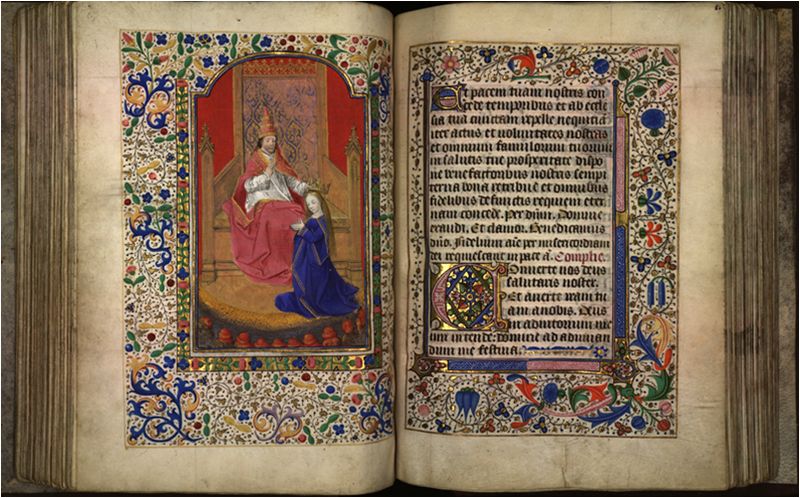 Et pacem tuam nostris con
cede temporibus et ab eccle
sia tua cunctam repelle nequicia
actus et voluntates nostras
et omnium famulorum tuorum
in salutis tue prosperitate dispo
ne benefactoribus nostris sempi
terna bona retribue et omnibus
fidelibus defunctis requiem eter
nam concede. Per dnm. Domine
exaudi. Et clamor. Benedicamus
dno. Fidelium aie per misericordiam
dei requiescant in pace a. Complie.
Converte nos deus
salutaris noster.
Et averte iram tu
am a nobis. Deus
in adiutorium me
um intende. Domine ad adiuvan
dum me festina.